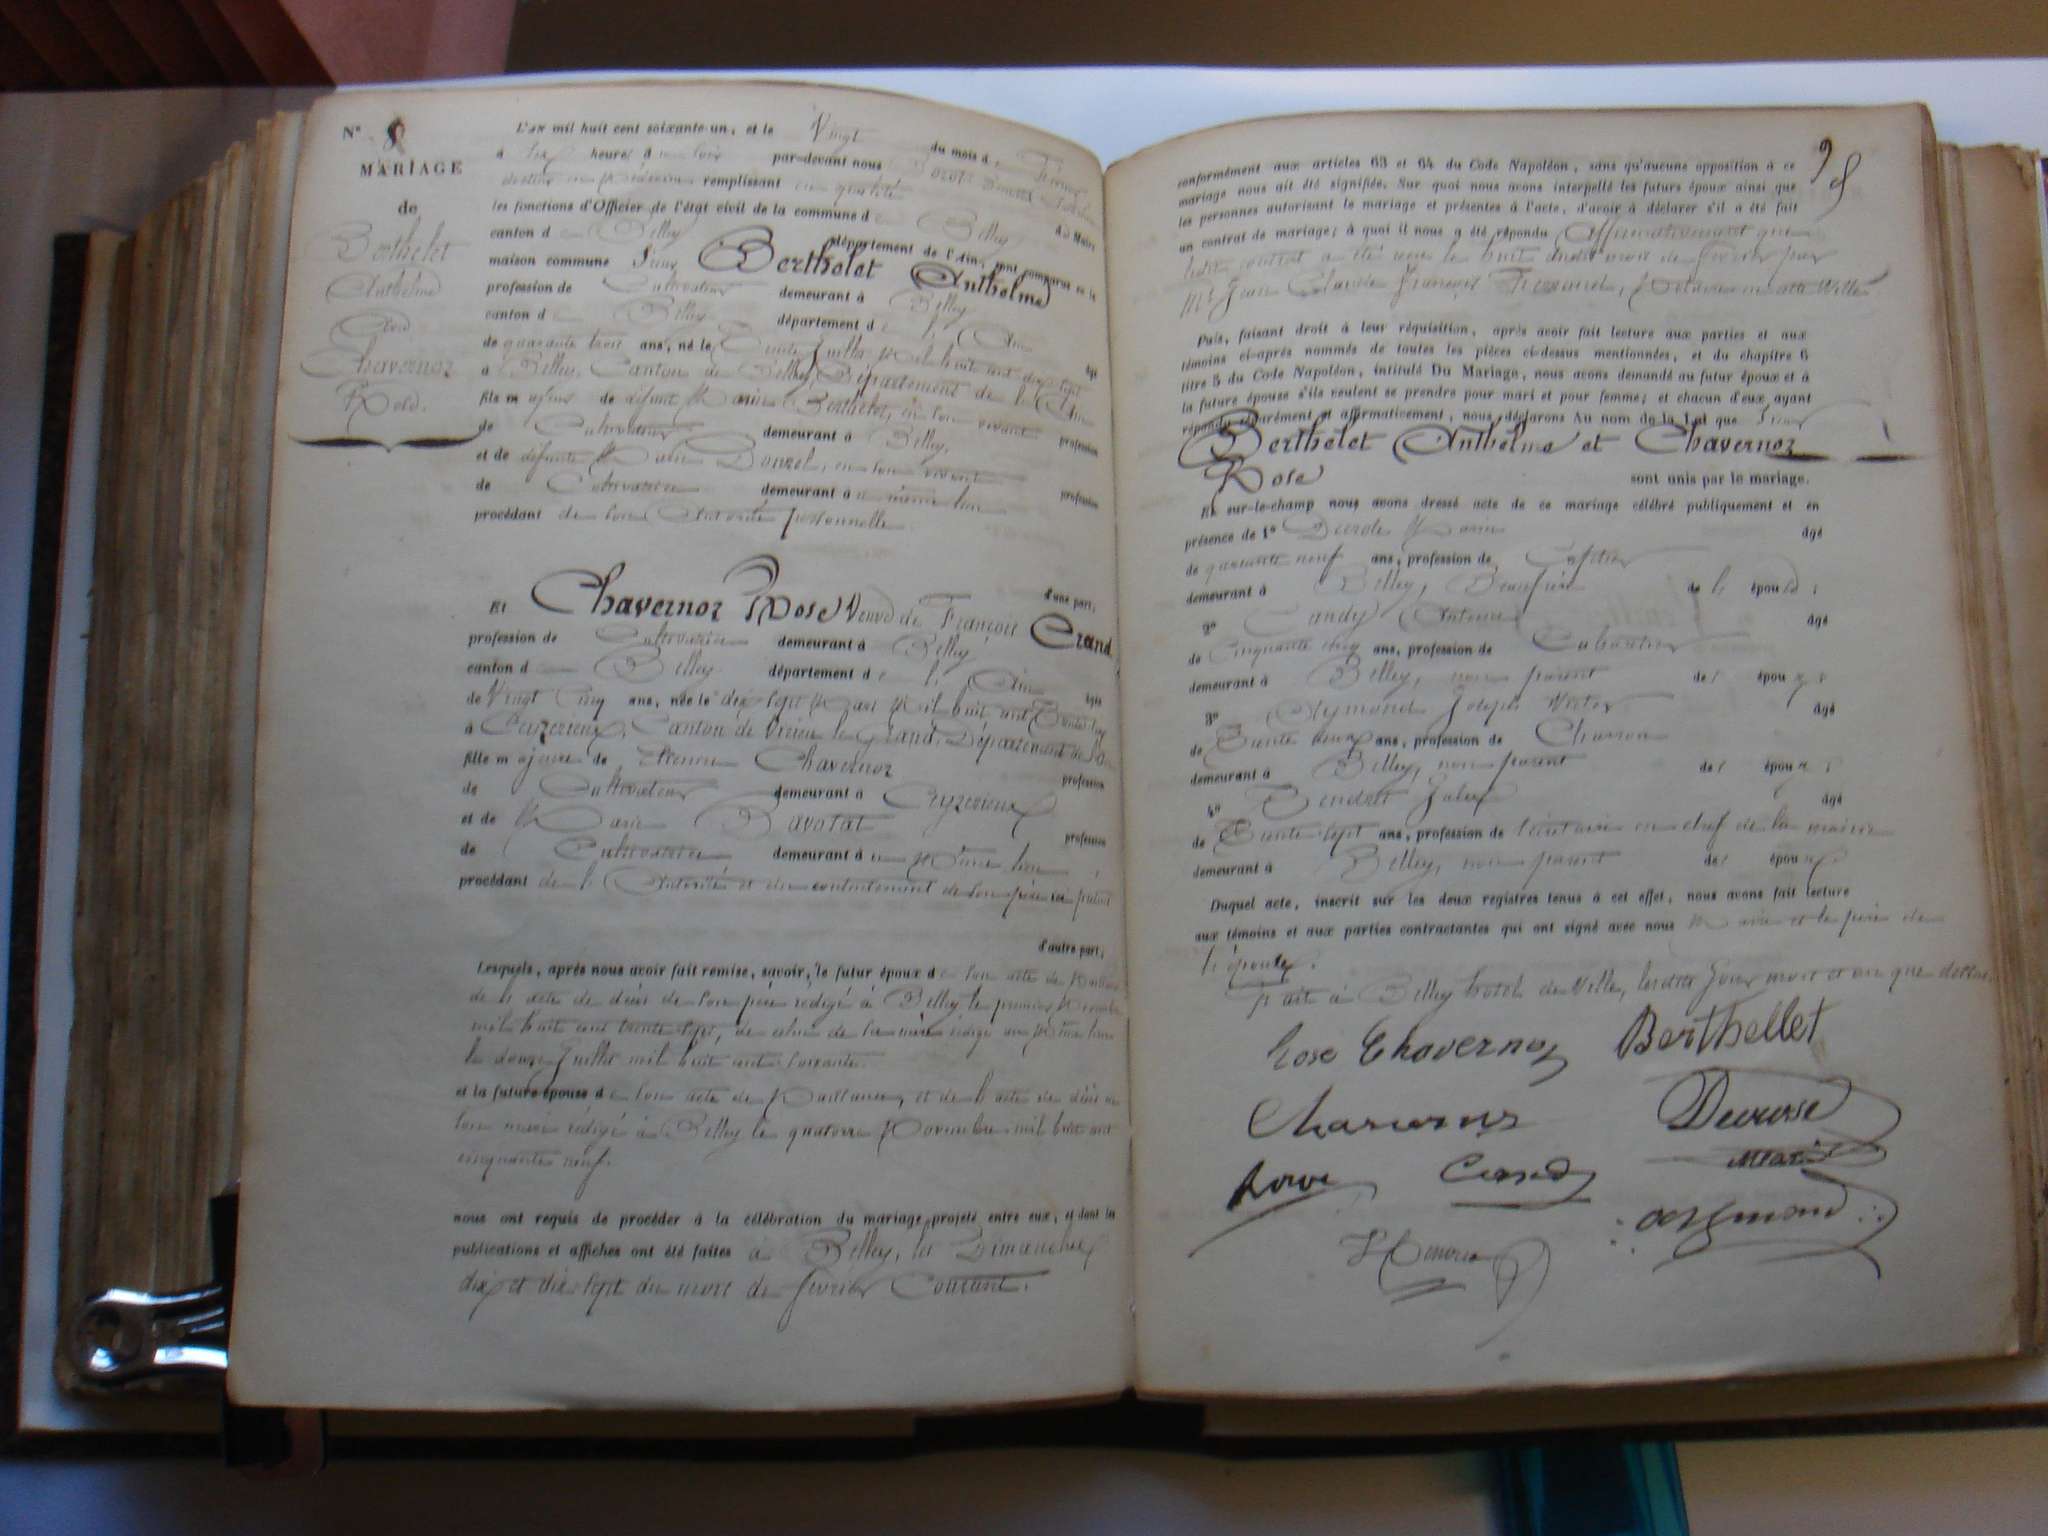 N° 8
MARIAGE
de
Berthelet
Anthelme
Avec
Chavernoz
Rose.
L'an mil huit cent soixante-un, et le Vingt du mois de Février
à Six heures du soir par-devant nous
docteur en Médecine remplissant en qualité de Maire
les fonctions d'Officier de l'état civil de la commune de Belley
canton de Belley département de l'Ain, sont comparus en la
maison commune Sieur Berthelet Anthelme
profession de Cultivateur demeurant à Belley
canton de Belley département de l'Ain âgé
de quarante trois ans, né le Trente Juillet Mil huit cent dix sept
à Belley, Canton de Belley, Département de l'Ain
fils majeur de défunt Marin Berthelet, en son vivant profession
de Cultivateur demeurant à Belley,
et de défunte Marie Bonzel, en son vivant profession
de Cultivatrice demeurant au même lieu
procédant de son Autorité personnelle
d'une part;
Et Chavernoz Rose Veuve de François Crand
profession de Cultivatrice demeurant à Belley
canton de Belley département de l'Ain âgée
de Vingt Cinq ans, née le dix sept Mars Mil huit cent Trente Cinq
à Ceyzerieux, Canton de Virieu le Grand, Département de l'Ain
fille majeure de Etienne Chavernoz profession
de Cultivateur demeurant à Ceyzerieux
et de Marie Davotat profession
de Cultivatrice demeurant au Même lieu,
procédant de l'Autorité et du consentement de son père ici présent
d'autre part;
Lesquels, après nous avoir fait remise, savoir, le futur époux de son acte de Naissance
de l'acte de décès de son père rédigé à Belley le premier Novembre
mil huit cent trente sept, de celui de sa mère rédigé au Même lieu
le douze Juillet mil huit cent soixante.
et la future épouse de son acte de Naissance, et de l'acte de décès de
son mari rédigé à Belley le quatorze Novembre mil huit cent
cinquante neuf.
nous ont requis de procéder à la célébration du mariage projeté entre eux, et dont la
publications et affiches ont été faites à Belley, les Dimanches
dix et dix sept du mois de février Courant.
conformément aux articles 63 et 64 du Code Napoléon, sans qu'aucune opposition à ce
mariage nous ait été signifiée. Sur quoi nous avons interpellé les futurs époux ainsi que
les personnes autorisant le mariage et présentes à l'acte, d'avoir à déclarer s'il a été fait
un contrat de mariage; à quoi il nous a été répondu Affirmativement que
ledit contrat a été reçu le huit dudit mois de février par
Mr Jean Claude François Notaire en cette Ville
Puis, faisant droit à leur réquisition, après avoir fait lecture aux parties et aux
témoins ci-après nommés de toutes les pièces ci-dessus mentionnées, et du chapitre 6
titre 5 du Code Napoléon, intitulé Du Mariage, nous avons demandé au futur époux et à
la future épouse s'ils veulent se prendre pour mari et pour femme; et chacun d'eux ayant
répondu séparément et affirmativement, nous déclarons Au nom de la Loi que Sieur
Berthelet Anthelme et Chavernoz
Rose sont unis par le mariage.
Et sur-le-champ nous avons dressé acte de ce mariage célébré publiquement et en
présence de 1° Marin âgé
de quarante neuf ans, profession de
demeurant à Belley, Beaufrère de l'époux;
2° Candy Antoine âgé
de Cinquante cinq ans, profession de Cabaretier
demeurant à Belley, non parent des époux;
3° Aymond Joseph Victor âgé
de Trente deux ans, profession de Charron
demeurant à Belley, non parent des époux;
4° Jules âgé
de Trente sept ans, profession de secrétaire en chef de la mairie
demeurant à Belley, non parent des époux
Duquel acte, inscrit sur les deux registres tenus à cet effet, nous avons fait lecture
aux témoins et aux parties contractantes qui ont signé avec nous Maire et le père de
l'épouse.
Fait à Belley hotel de Ville, lesdits jour mois et an que dessus.
Rose Chavernoz Berthellet
Chavernoz Decrose
Marin
Aymond